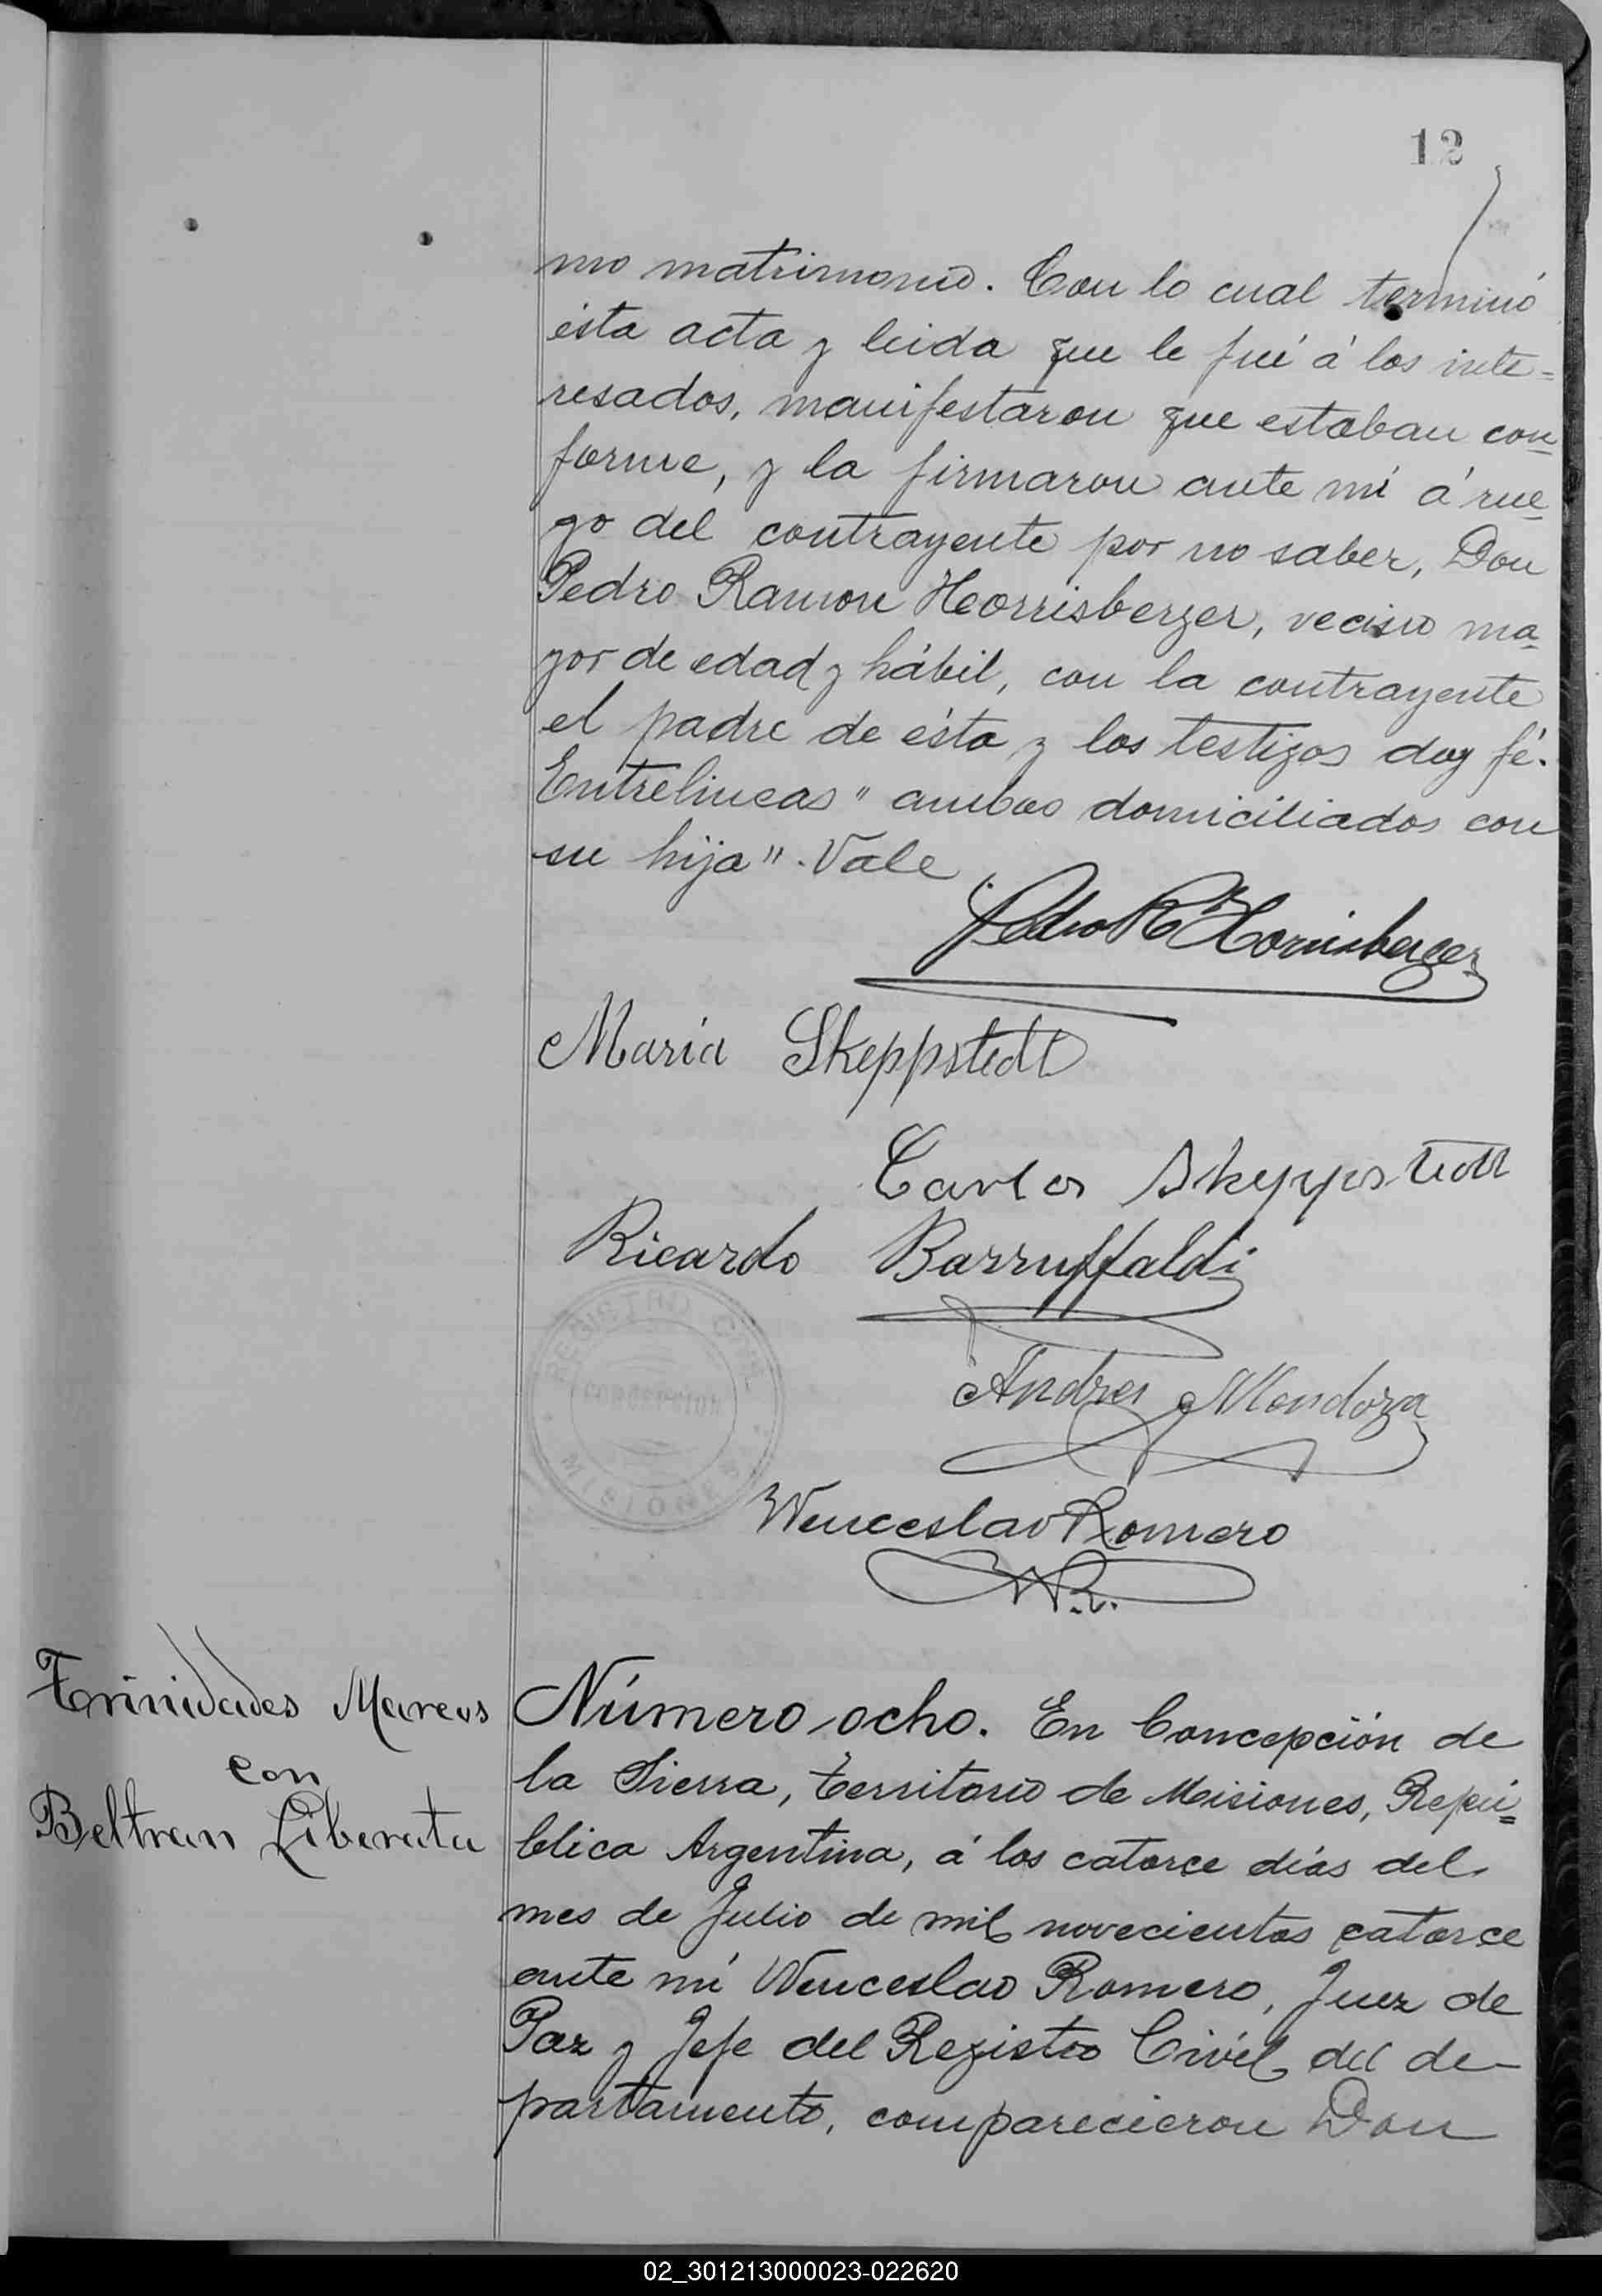 12
mo matrimonio. Con lo cual terminó
ésta acta y leida que le fué á los inte=
resados, manifestaron que estaban con=
forme, y la firmaron ante mí á rue=
go del contrayente por no saber, Don
Pedro Ramon Heorrisberger, vecino ma=
yor de edad y hábil, con la contrayente
el padre de ésta y los testigos doy fé.
Entrelineas "ambos domiciliados con
su hija". Vale
Pedro R Hornisberger
Maria Skeppstedt
Carlos Skeppstedt
Ricardo Barruffaldi
REGISTRO CIVIL
MISIONES
Andres Mendoza
Wenceslao Romero
W.R.
Trinidades Marcos
con
Beltran Liberata
Número ocho. En Concepción de
la Sierra, territorio de Misiones, Repú=
blica Argentina, á los catorce días del
mes de Julio de mil novecientos catorce
ante mí Wenceslao Romero, Juez de
Paz y Jefe del Registro Civil del de-
partamento, comparecieron Don
02_301213000023-022620